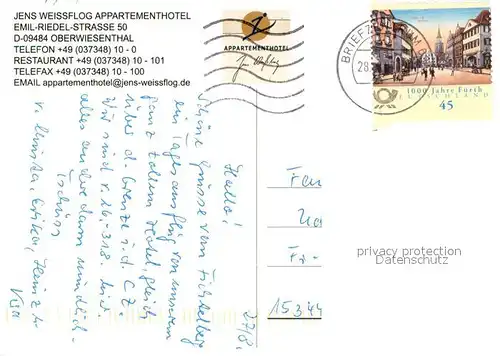 JENS WEISSFLOG APPARTEMENTHOTEL
EMIL-RIEDEL-STRASSE 50
D-09484 OBERWIESENTHAL
TELEFON +49 (037348) 10 - 0
RESTAURANT +49 (037348) 10 - 101
TELEFAX +49 (037348) 10 - 100
EMAIL appartementhotel@jens-weissflog.de
APPARTEMENTHOTEL
Jens Weißflog
BRIEFZ
28.
1000 Jahre Fürth
DEUTSCHLAND
45
Hallo!
Schöne Grüsse vom Fichtelberg
ein Tagesausflug von unserem
ganz tollen Hotel, gleich
über d. Grenze i. d. CZ.
Wir sind v. 16.-31.8. hier.
alles andere dann mündlich -
Tschüss
v. Christa, Erika, Heinz u.
27/8.
Fr.
15344
privacy protection
Datenschutz